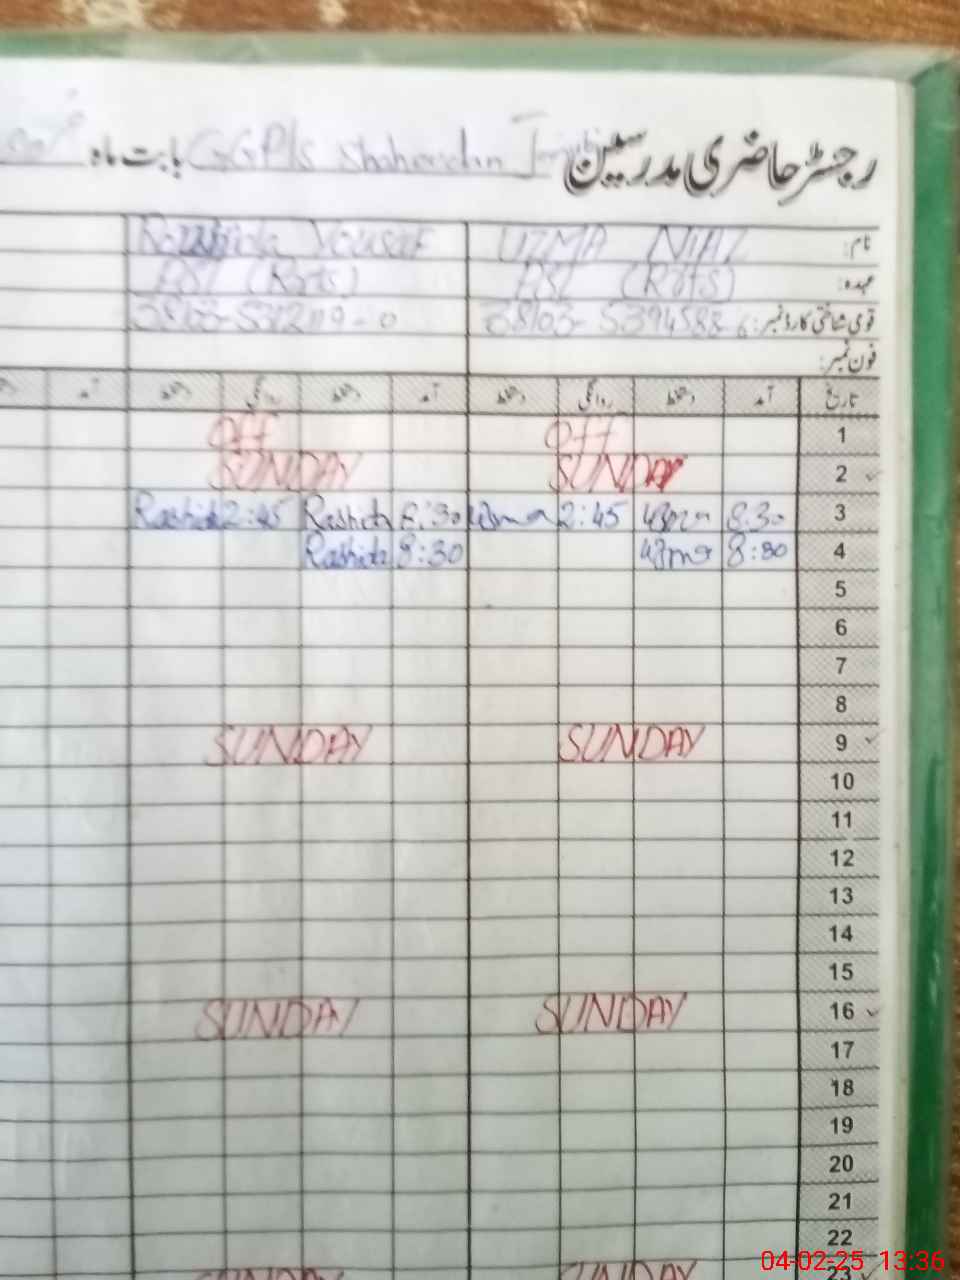 رجسٹر حاضری مدرسین GGPS Shahawalan بابت ماہ
نام: UZMA NIAZ Rashida Yousaf
عہدہ: PST (Rats) PST (Rats)
قومی شناختی کارڈ نمبر: 38103-5394588-6
فون نمبر:
تاریخ آمد دستخط روانگی دستخط آمد دستخط روانگی دستخط آمد
1 Off Off
2 SUNDAY SUNDAY
3 8:30 Uzma 2:45 Uzma 8:30 Rashida 2:45 Rashida
4 8:30 Uzma 8:30 Rashida
5
6
7
8
9 SUNDAY SUNDAY
10
11
12
13
14
15
16 SUNDAY SUNDAY
17
18
19
20
21
22
23 SUNDAY SUNDAY
04-02-25 13:36